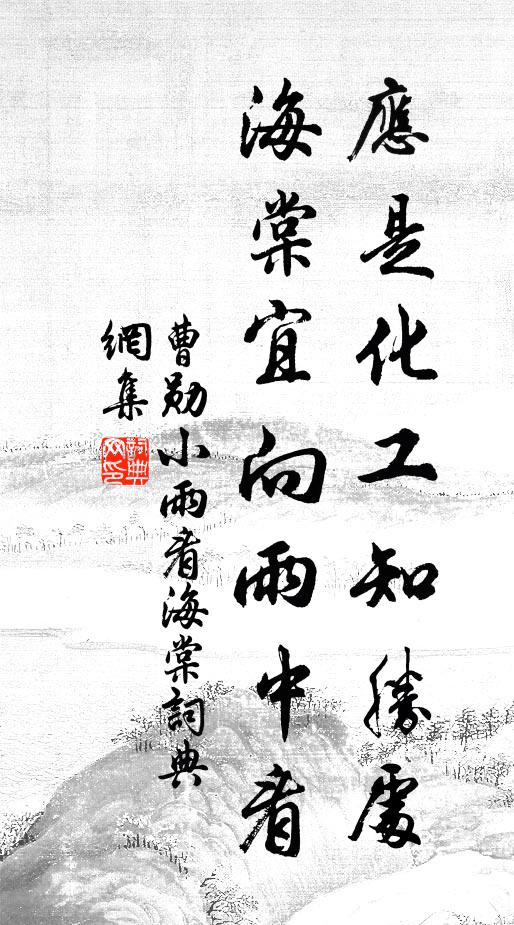 應是化工知勝處
海棠宜向雨中看
曹勛小雨看海棠詞典
網集
詞典網印